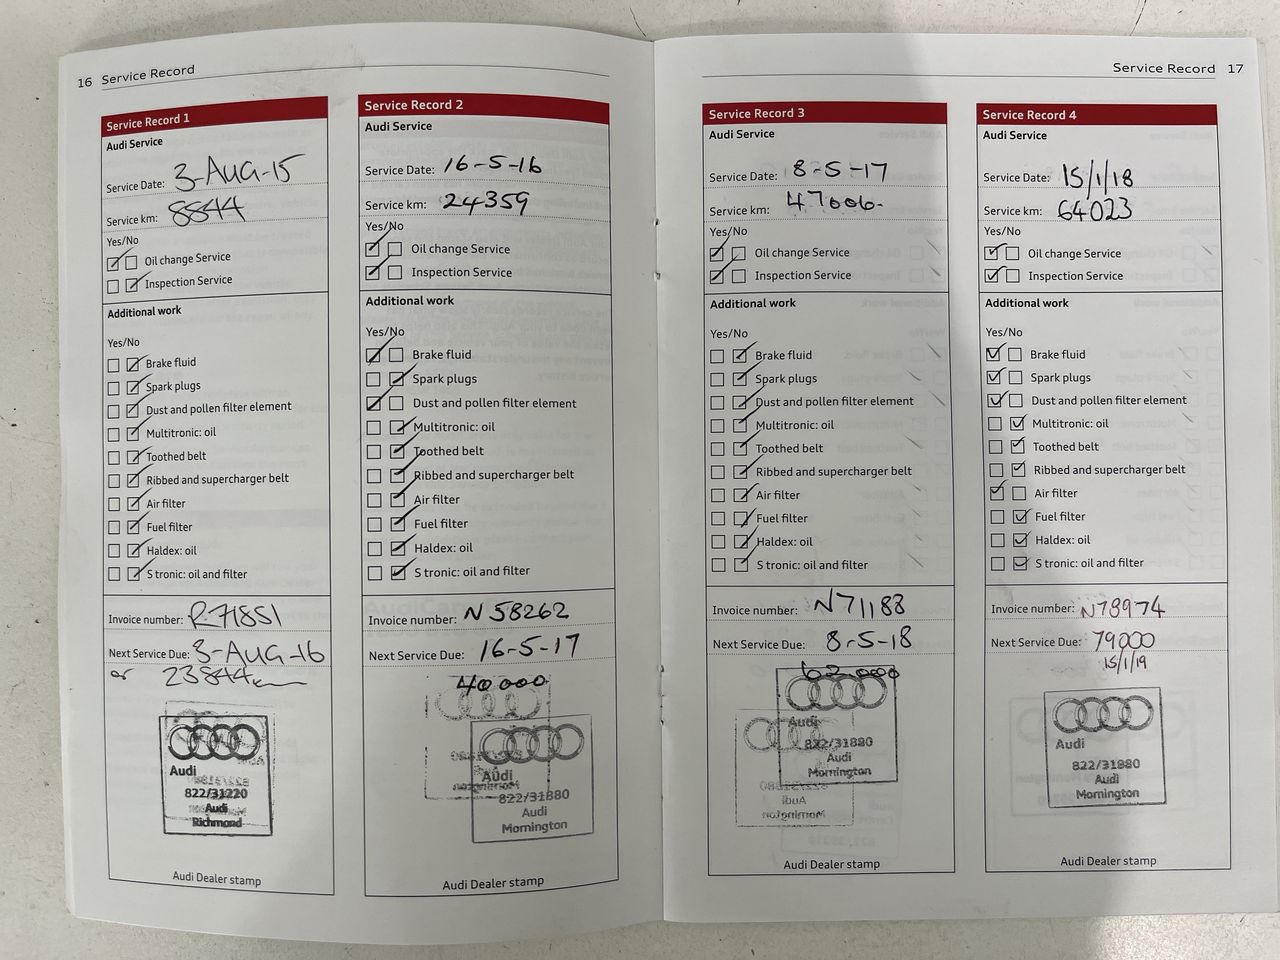 16 Service Record
Service Record 1
Audi Service
Service Date: 3-AUG-15
Service km: 8844
Yes/No
Oil change Service
Inspection Service
Additional work
Yes/No
Brake fluid
Spark plugs
Dust and pollen filter element
Multitronic: oil
Toothed belt
Ribbed and supercharger belt
Air filter
Fuel filter
Haldex: oil
S tronic: oil and filter
Invoice number: R71851
Next Service Due: 3-AUG-16
or 23844km
Audi
822/31220
Audi
Richmond
Audi Dealer stamp
Service Record 2
Audi Service
Service Date: 16-5-16
Service km: 24359
Yes/No
Oil change Service
Inspection Service
Additional work
Yes/No
Brake fluid
Spark plugs
Dust and pollen filter element
Multitronic: oil
Toothed belt
Ribbed and supercharger belt
Air filter
Fuel filter
Haldex: oil
S tronic: oil and filter
Invoice number: N58262
Next Service Due: 16-5-17
40000
Audi
822/31880
Audi
Mornington
Audi Dealer stamp
Service Record 17
Service Record 3
Audi Service
Service Date: 8-5-17
Service km: 47006
Yes/No
Oil change Service
Inspection Service
Additional work
Yes/No
Brake fluid
Spark plugs
Dust and pollen filter element
Multitronic: oil
Toothed belt
Ribbed and supercharger belt
Air filter
Fuel filter
Haldex: oil
S tronic: oil and filter
Invoice number: N71188
Next Service Due: 8-5-18
62000
Audi
822/31880
Audi
Mornington
Audi Dealer stamp
Service Record 4
Audi Service
Service Date: 15/1/18
Service km: 64023
Yes/No
Oil change Service
Inspection Service
Additional work
Yes/No
Brake fluid
Spark plugs
Dust and pollen filter element
Multitronic: oil
Toothed belt
Ribbed and supercharger belt
Air filter
Fuel filter
Haldex: oil
S tronic: oil and filter
Invoice number: N78974
Next Service Due: 79000
15/1/19
Audi
822/31880
Audi
Mornington
Audi Dealer stamp